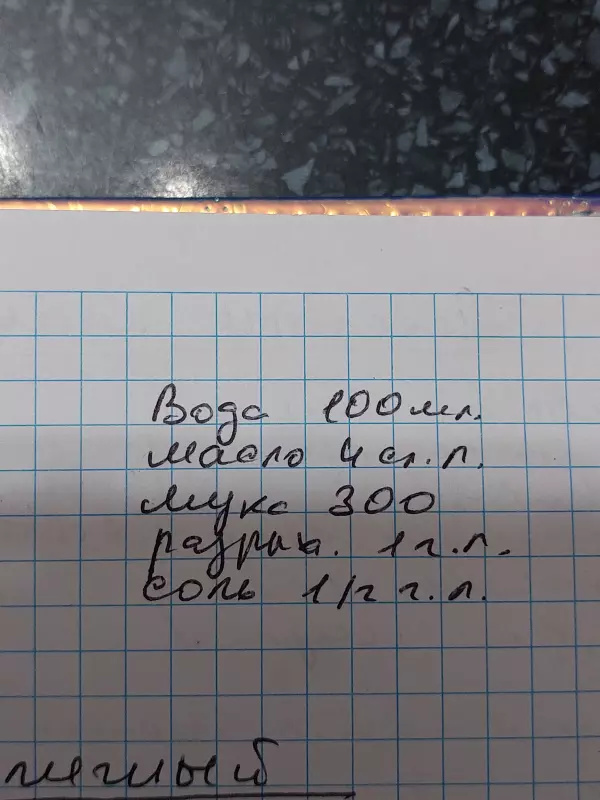 Вода 100 мл.
масло 4 ст. л.
мука 300
разрых. 1 ч. л.
соль 1/2 ч. л.